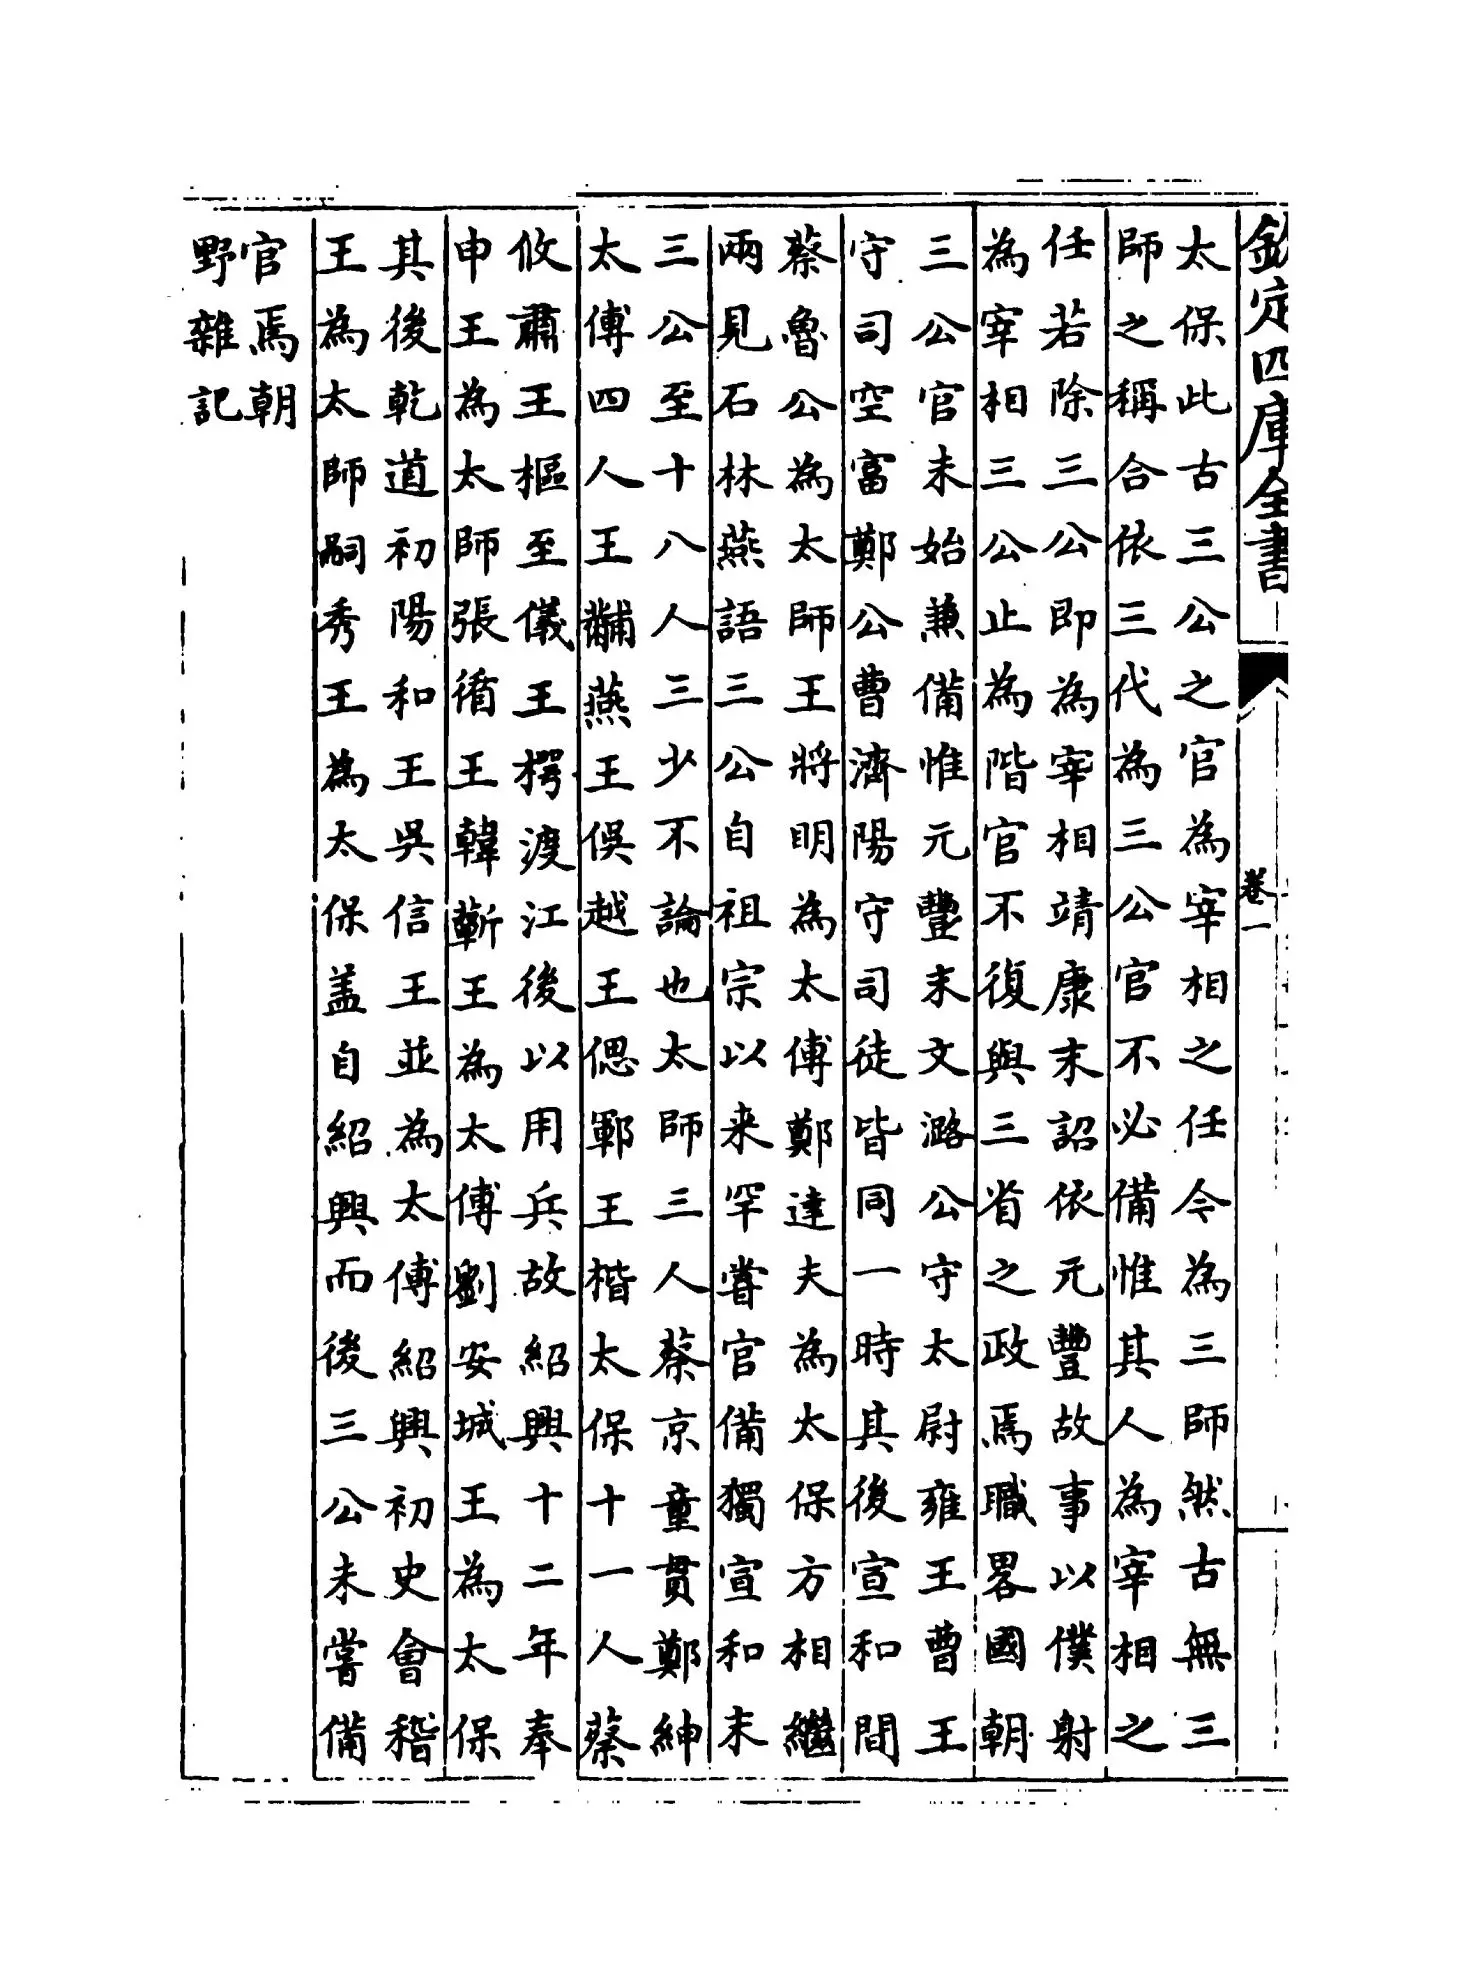 欽定四庫全書
卷一
太保此古三公之官為宰相之任今為三師然古無三
師之稱合依三代為三公官不必備惟其人為宰相之
任若除三公即為宰相靖康末詔依元豐故事以僕射
為宰相三公止為階官不復與三省之政焉職畧國朝
三公官未始兼備惟元豐末文潞公守太尉雍王曹王
守司空富鄭公曹濟陽守司徒皆同一時其後宣和間
蔡魯公為太師王將明為太傅鄭達夫為太保方相繼
兩見石林燕語三公自祖宗以来罕嘗官備獨宣和末
三公至十八人三少不論也太師三人蔡京童貫鄭紳
太傅四人王黼燕王俁越王偲鄆王楷太保十一人蔡
攸肅王樞至儀王㮙渡江後以用兵故紹興十二年奉
申王為太師張循王韓蘄王為太傅劉安城王為太保
其後乾道初陽和王吳信王並為太傅紹興初史會稽
王為太師嗣秀王為太保盖自紹興而後三公未嘗備
官焉朝
野雜記